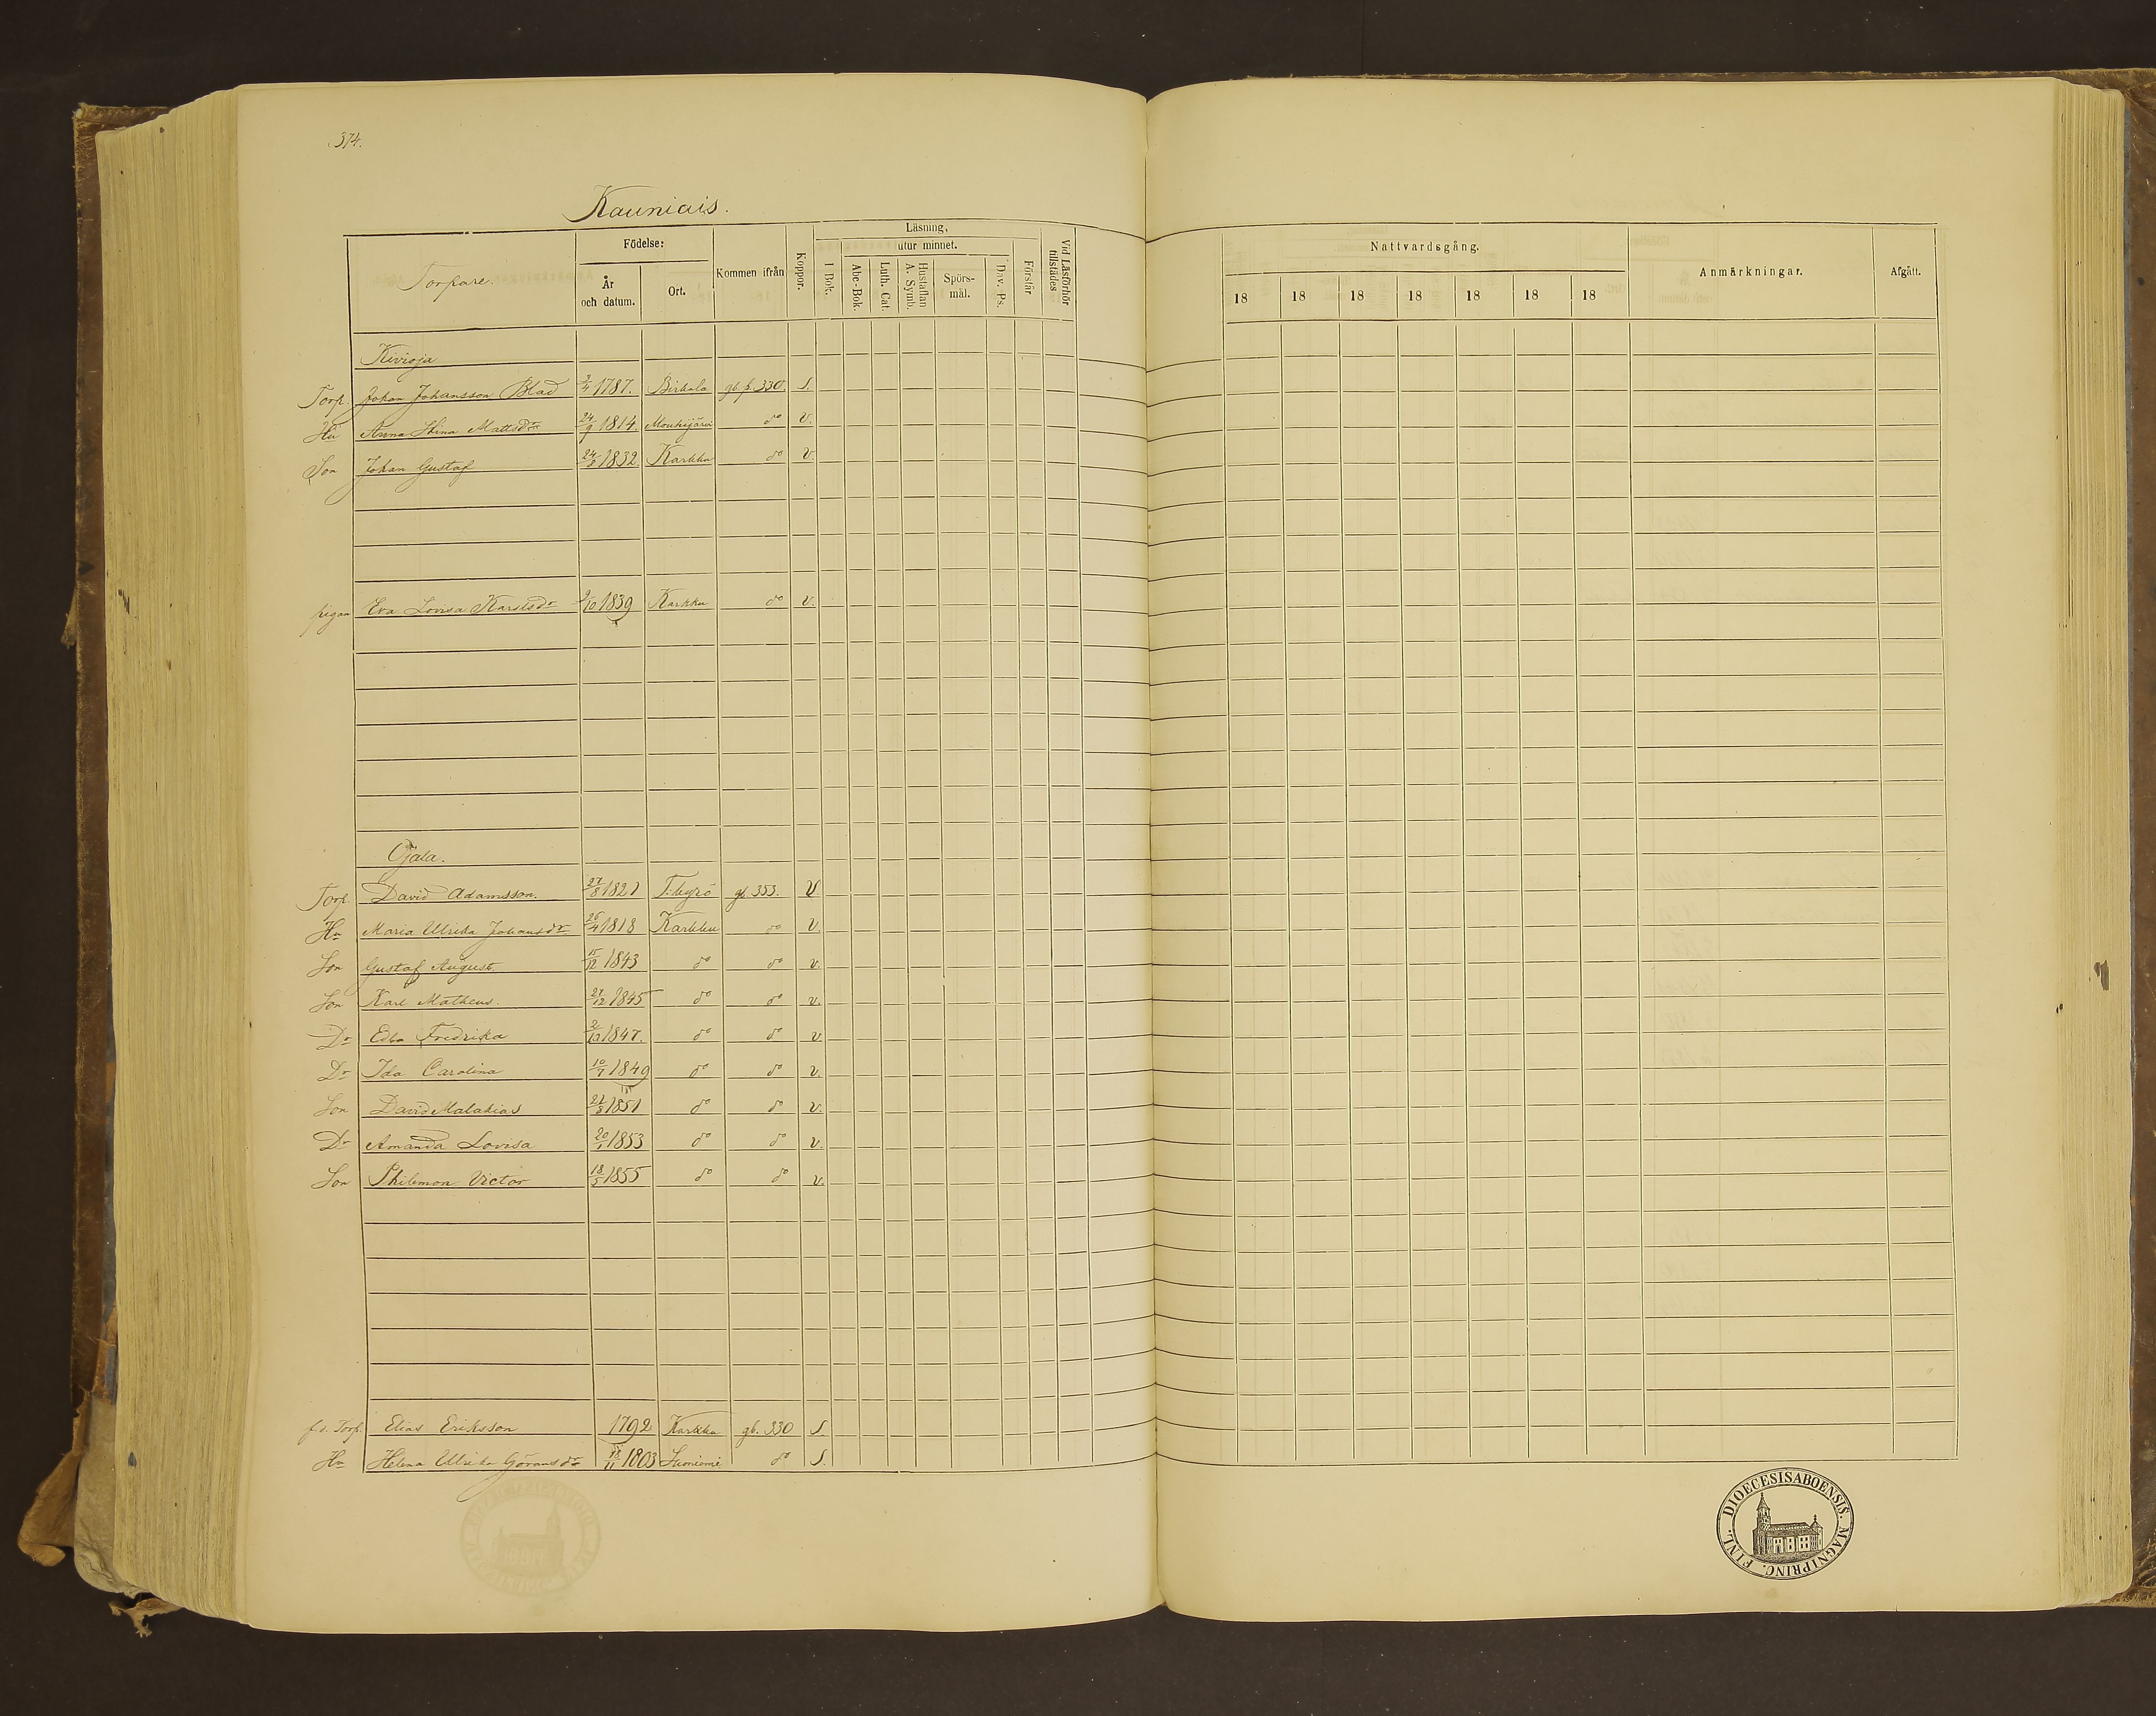 374.
Kauniais.
Torpare. Födelse: År och datum. Ort. Kommen ifrån Koppor. Läsning, I Bok. utur minnet. Abc-Bok. Luth. Cat. Hustaflan A. Symb. Spörs-mål. Dav. Ps. Förstår Vid Läsförhör tillstädes Nattvardsgång. 18 18 18 18 18 18 18 Anmärkningar. Afgått.
Kivioja
Torp. Johan Johansson Blad 3/4 1787. Birkala gb. p. 330. S.
Hu Anna Stina Mattsdr 24/9 1814. Mouhijärvi do v.
Son Johan Gustaf 24/5 1832 Karkku do v.
pigan Eva Lovisa Karlsdr 9/10 1839 Karkku do v.
Ojala.
Torp. David Adamsson. 27/8 1821 T:kyrö gb. 353. V
Hu Maria Ulrika Johansdr 26/4 1818 Karkku do v.
Son Gustaf August. 15/12 1843 do do v.
Son Karl Matheus. 21/12 1845 do do v.
Dr Edla Fredrika 2/10 1847. do do v.
Dr Ida Carolina 10/7 1849 do do v.
Son David Malakias 21/3 1851 do do v.
Dr Amanda Lovisa 20/1 1853 do do v.
Son Philemon Victor 18/5 1855 do do v.
fd. Torp. Elias Eriksson 1792 Karkku gb. 330 S.
Hu Helena Ulrika Göransdr 18/11 1803 Suoniemi do S.
DIOECESIS ABOENSIS. MAGNI PRINC. FINL.